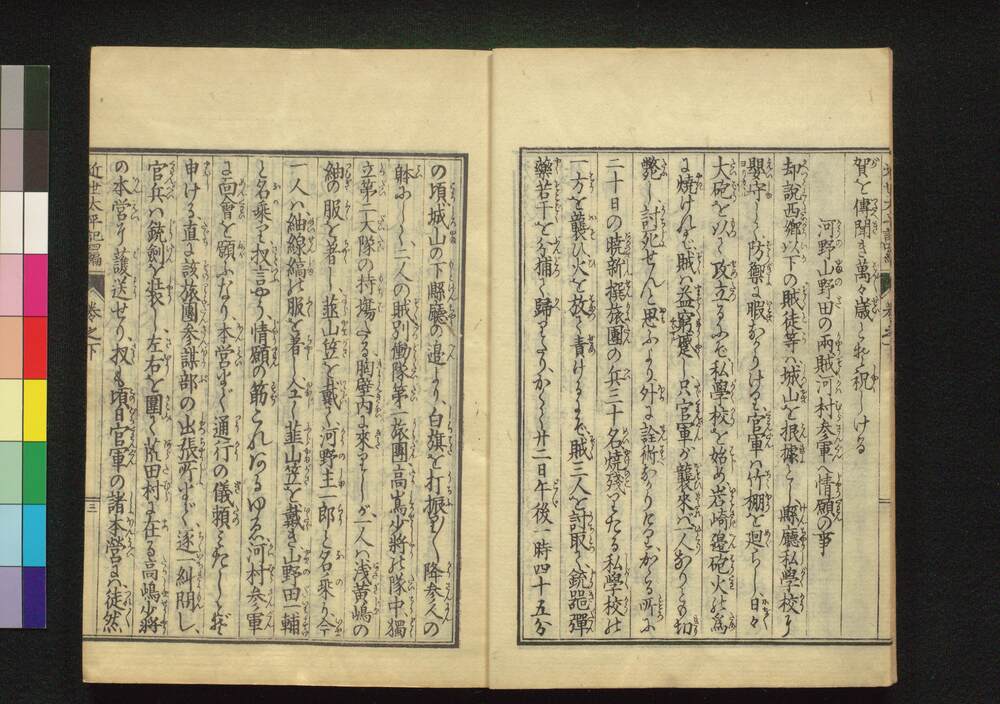 賀を傳聞き萬々歳とぞ祝しける
河野山野田の兩賊河村参軍へ情願の事
却説西郷以下の賊徒等ハ城山を根據とし縣廳私學校に
嬰守し防禦に暇なかりけるに官軍ハ竹棚を廻らし日々
大砲を以て攻立るにぞ私學校を始め岩崎邉砲火の為
に焼けれバ賊ハ益窮蹙し只官軍が襲來バ一人なりとも切
斃し討死せんと思ふより外に詮術なかりけりかゝる所に
二十日の暁新撰旅團の兵三十名焼殘りたる私學校の
一方を襲ひ火を放て責けるにぞ賊三人を討取て銃器彈
藥若干を分捕て歸りたりかくて廿二日午後一時四十五分
の頃城山の下縣廳の邊より白旗を打振りて降参人の
躰にして二人の賊別働隊第一旅團高嶋少將の隊中獨
立第二大隊の持塲なる胸壁内に來りしが一人ハ浅黄嶋の
紬の服を着し韮山笠を戴て河野主一郎と名乗り今
一人ハ紬線縞の服を着し仝く韮山笠を戴き山野田一輔
と名乗りて扨言やう情願の筋これあるゆゑ河村参軍
に面會を願ふなり本營まで通行の儀頼みたしとぞ
申ける直に該旅團参謀部の出張所にて逐一糾問し
官兵ハ銃劍を装し左右を圍て荒田村に在る高嶋少將
の本營に護送せり扨も頃日官軍の諸本營にハ徒然
近世太平記四編
巻之下
三